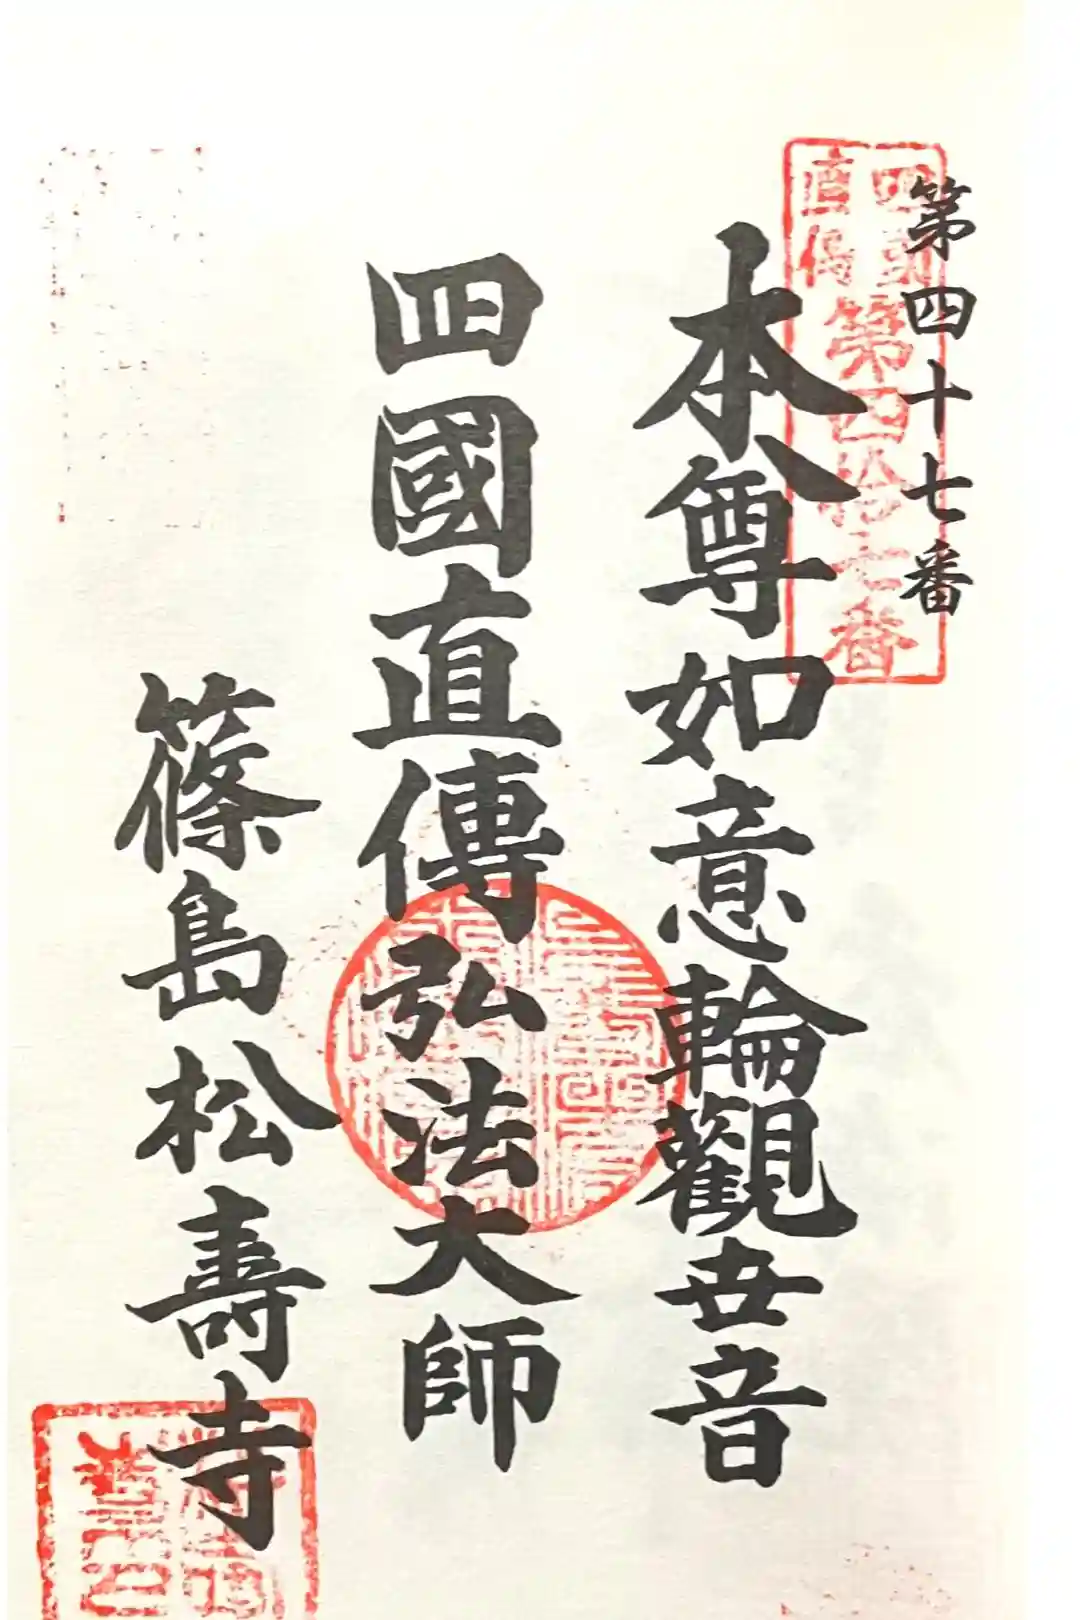 第四十七番
四國
直傳
第四拾七番
本尊如意輪觀世音
四國直傳弘法大師
篠島松壽寺